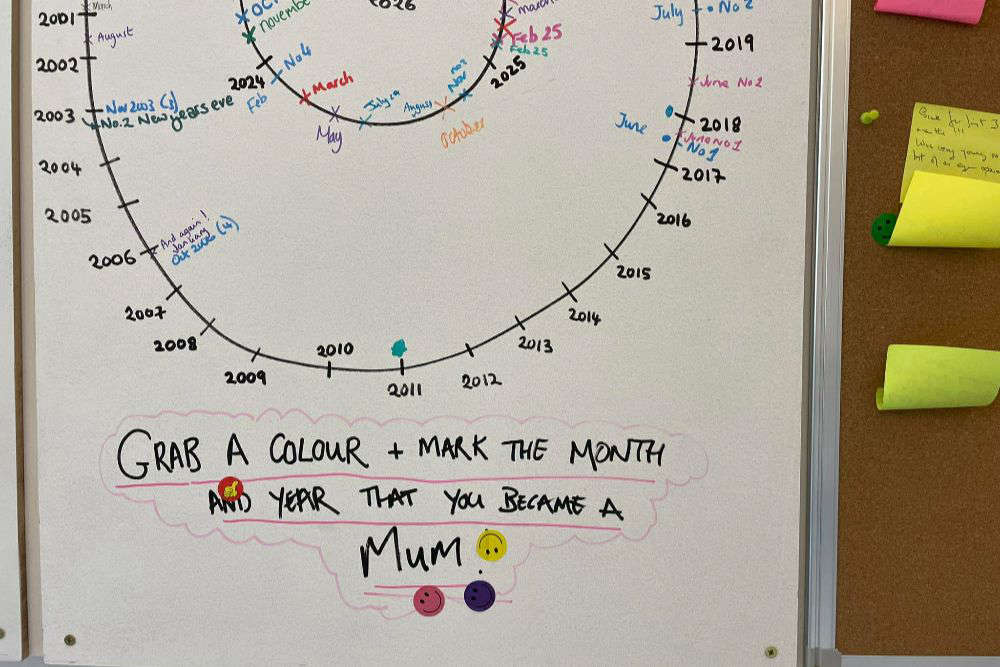 2001
March
August
2002
2003
Nov 2003 (3)
No.2 New years eve
2004
2005
2006
And again!
January
Oct 2006 (4)
2007
2008
2009
2010
2011
2012
2013
2014
2015
2016
2017
No 1
June No 1
June
2018
June No 2
2019
July
No 2
2026
March
Feb 25
Feb 25
2025
no 2
Nov
October
August
July 19
May
March
Feb
No 4
2024
November
Oct
GRAB A COLOUR + MARK THE MONTH
AND YEAR THAT YOU BECAME A
MUM!